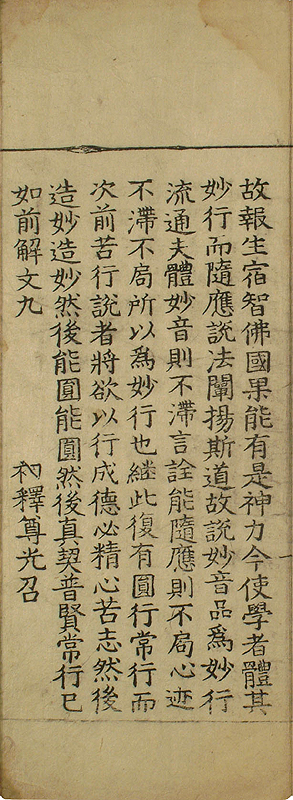 故報生宿智佛國果能有是神力今使學者體其
妙行而隨應說法闡揚斯道故說妙音品爲妙行
流通夫體妙音則不滯言詮能隨應則不局心迹
不滯不局所以爲妙行也継此復有圓行常行而
次前苦行說者將欲以行成德必精心苦志然後
造妙造妙然後能圓能圓然後真契普賢常行已
如前解文九　初釋尊光召